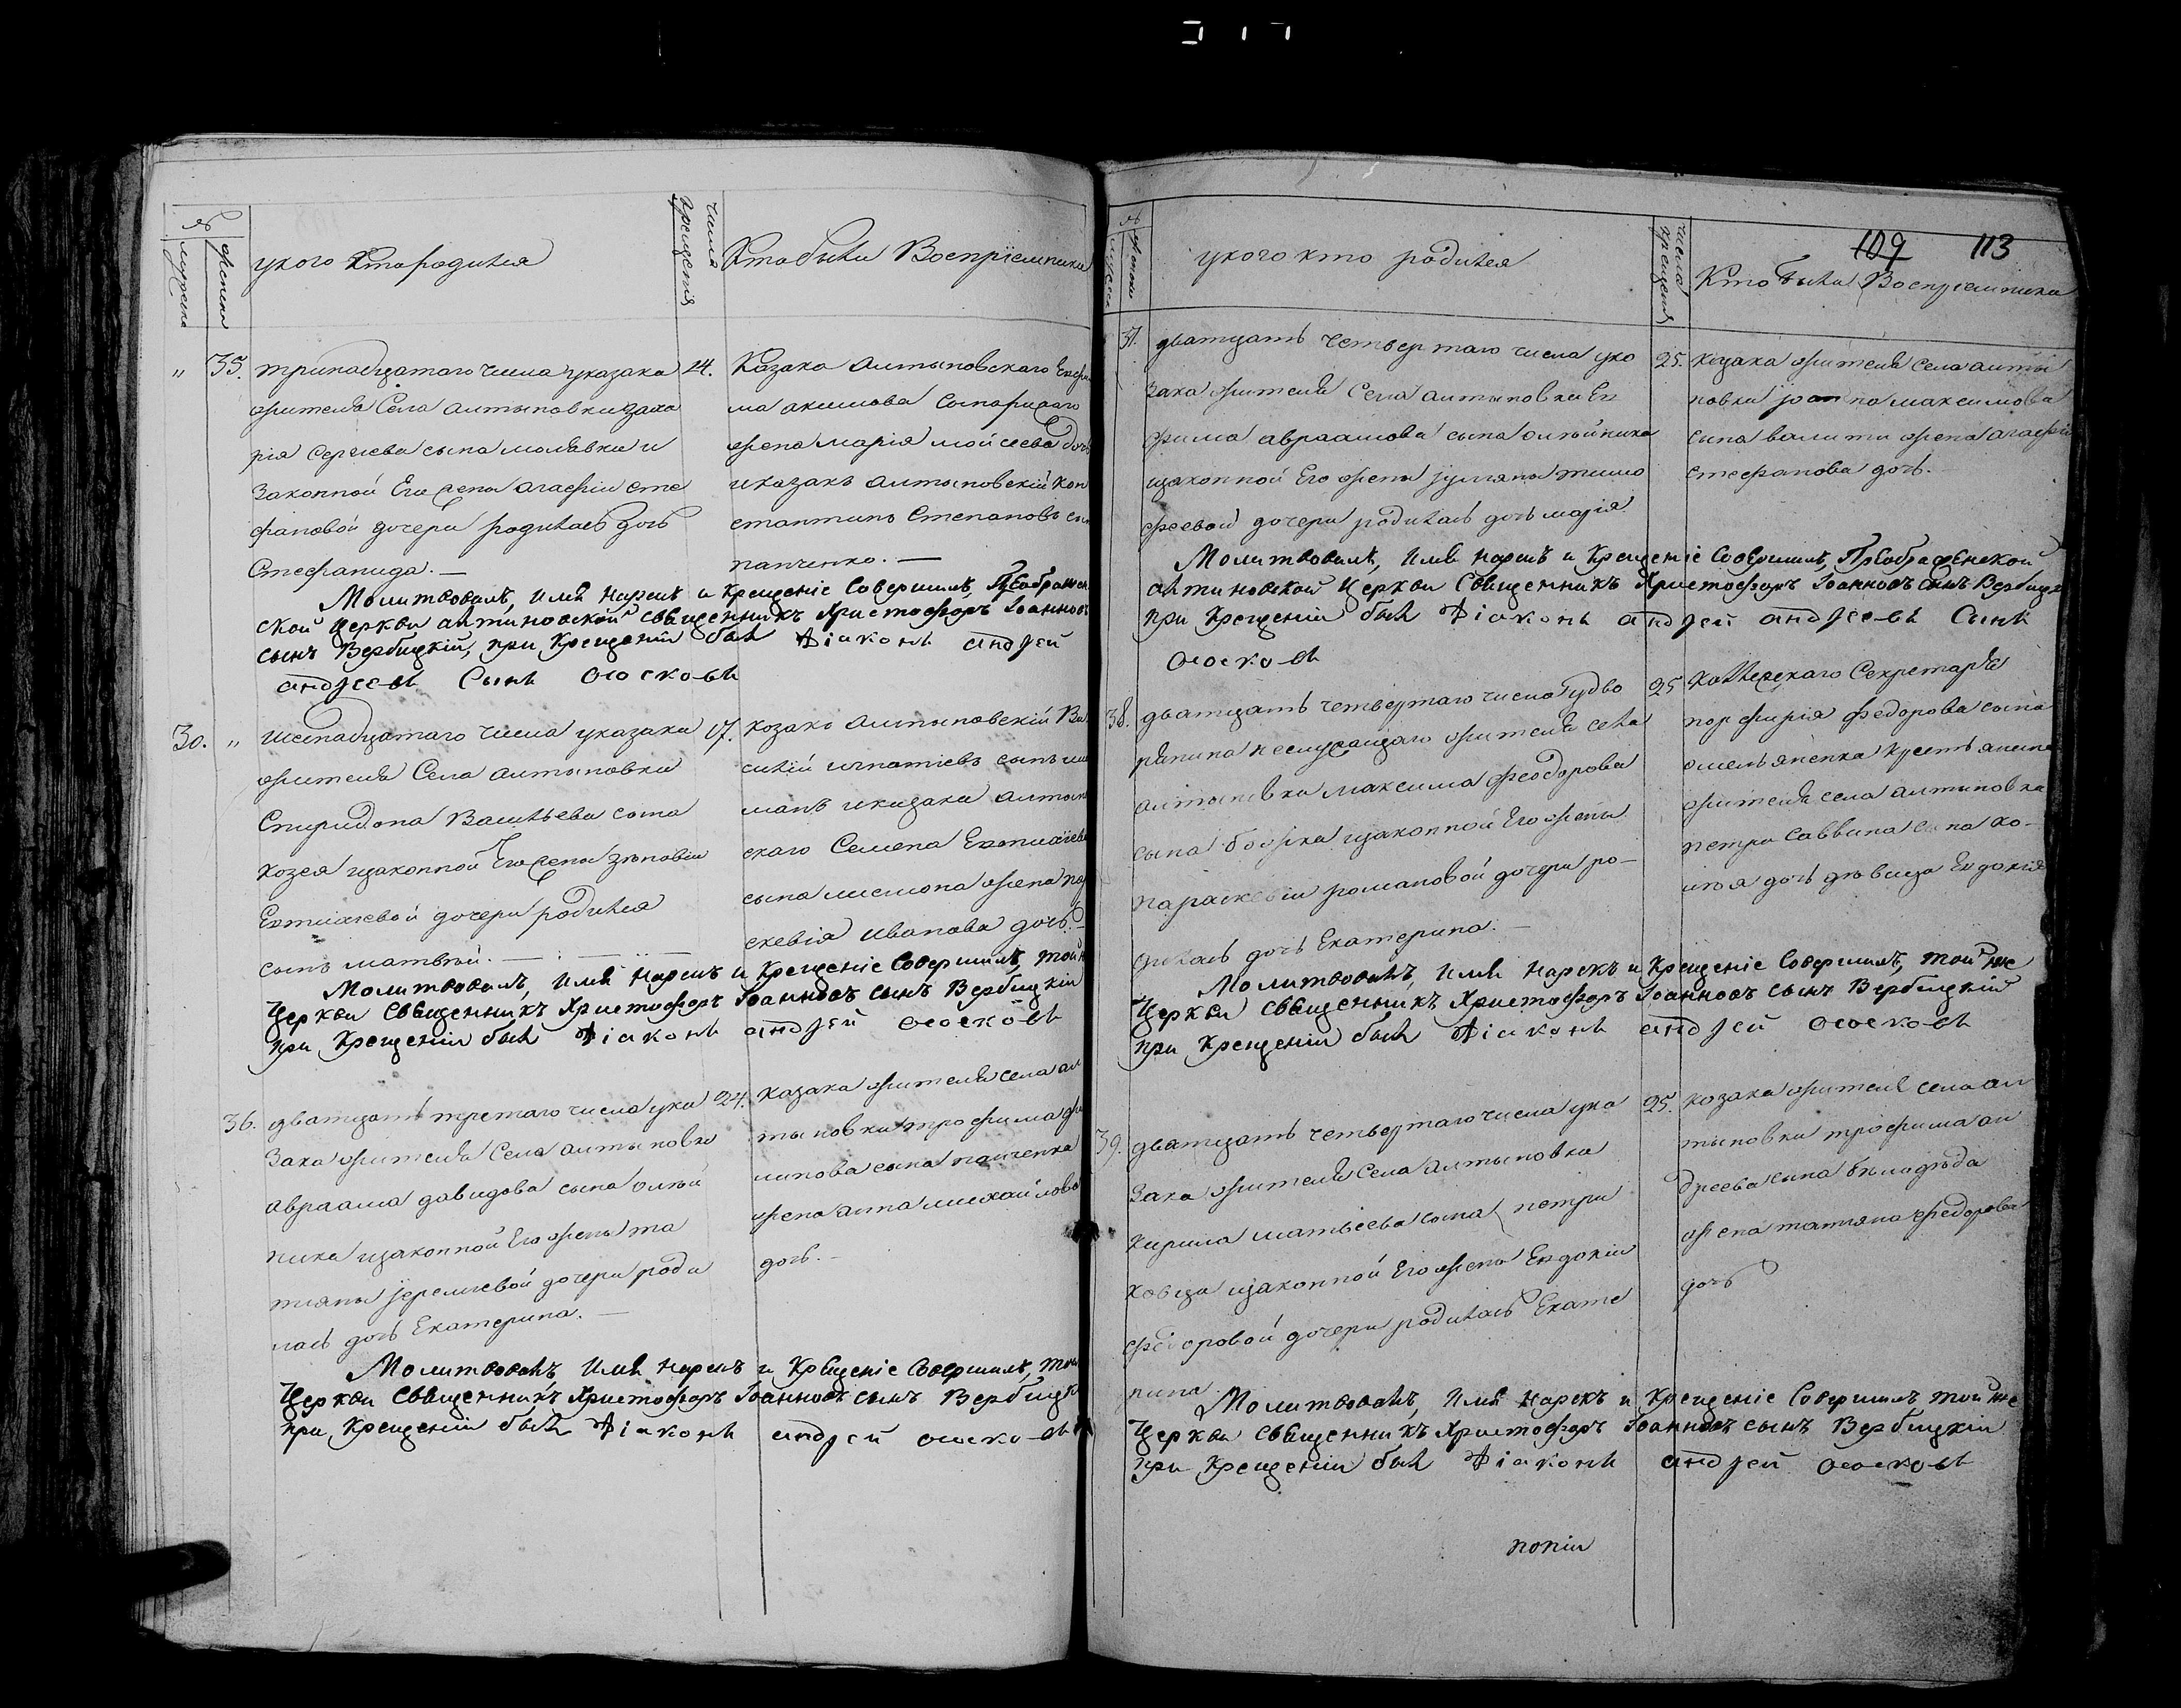 №
мужеска
женска
укого Кто родился
число крещения
Кто были Воспріемники
„ 35. тринадцатаго числа указака
жителя Села алтыновки заха
рія сергіева сына молявки и
Законной Его жены агафіи сте
фановой дочери родилась дочь
Стефанида. —
14. Казака алтыновскаго
ма акимова сына
жена марія мойсеева дочь
и казакъ алтыновскій кон
стантинъ Степановъ
панченко. —
Молитвовалъ, имя нарекъ и Крещеніе Совершилъ, Преображен
ской церкви алтиновской священникъ Христофоръ Іоанновъ
сынъ Вербицкій, при Крещеніи былъ Діаконъ андрей
андреевъ Сынъ Ососковъ
30. „ шеснадцатаго числа указака
жителя Села алтыновки
Спиридона Васильева сына
козея изаконной Его жены зиновіи
Евтихіевой дочери родился
сынъ матвѣй. —
17. козакъ алтыновскій Ва
силій игнатіевъ сынъ
манъ иказака
скаго Семена Евтихіева
сына жена
скевія иванова дочь. —
Молитвовалъ, имя Нарекъ и Крещеніе Совершилъ, той
Церкви Священникъ Христофоръ Іоанновъ сынъ Вербицкій
при Крещеніи былъ Діаконъ андрей Ососковъ
36. дватцать третаго числа ука
зака жителя Села алтыновки
авраама давидова сына олѣй
ника изаконной Его жены та
тияны іереміевой дочери роди
лась дочь Екатерина. —
24. казака жителя села ал
тыновки трофима фи
липова сына панченка
жена анна михайлова
дочь. —
Молитвовалъ, Имя нарекъ и Крещеніе Совершилъ, той
Церкви Священникъ Христофоръ Іоанновъ сынъ Вербицкі
при Крещеніи былъ Діаконъ андрей Ососковъ
109 113
№
мужеска
женска
укого кто родился
число крещения
Кто были Воспріемники
37. дватцать четвертаго числа ука
зака жителя Села алтыновки Еу
фима авраамова сына олѣйника
изаконной Его жены іулияны тимо
феевой дочери родилась дочь марія
25. козака жителя села алты
новки іоанна максимова
сына жена агафія
стефанова дочь. —
Молитвовалъ, имя нарекъ и Крещеніе Совершилъ, Преображенской
алтиновской Церкви Священникъ Христофоръ Іоанновъ сынъ Вербицк
при Крещеніи былъ Діаконъ андрей андреевъ Сынъ
Ососковъ
38. дватцать четвертаго числа удво
рянина неслужащаго жителя села
алтыновки максима феодорова
сына божка изаконной Его жены
параскевіи романовой дочери ро—
дилась дочь Екатерина. —
25 Коллежскаго Секретаря
порфирія федорова сына
омельяненка крестьянина
жителя села алтыновки
петра саввина сына ко—
дочь дѣвица Евдокія
Молитвовалъ, Имя нарекъ и Крещеніе Совершилъ, той же
Церкви Священникъ Христофоръ Іоанновъ сынъ Вербицкій
при Крещеніи былъ Діаконъ андрей Ососковъ
39. дватцать четвертаго числа ука
зака жителя Села алтыновки
Кирила матвеева сына петри
ковца изаконной Его жены Евдокіи
федоровой дочери родилась Екате
рина
25. козака жителя села ал
тыновки трофима ан
дреева сына бѣлодѣда
жена татияна федорова
дочь
Молитвовалъ, Имя Нарекъ и Крещеніе Совершилъ той же
Церкви Священникъ Христофоръ Іоанновъ сынъ Вербицкій
при Крещеніи былъ Діаконъ андрей Ососковъ